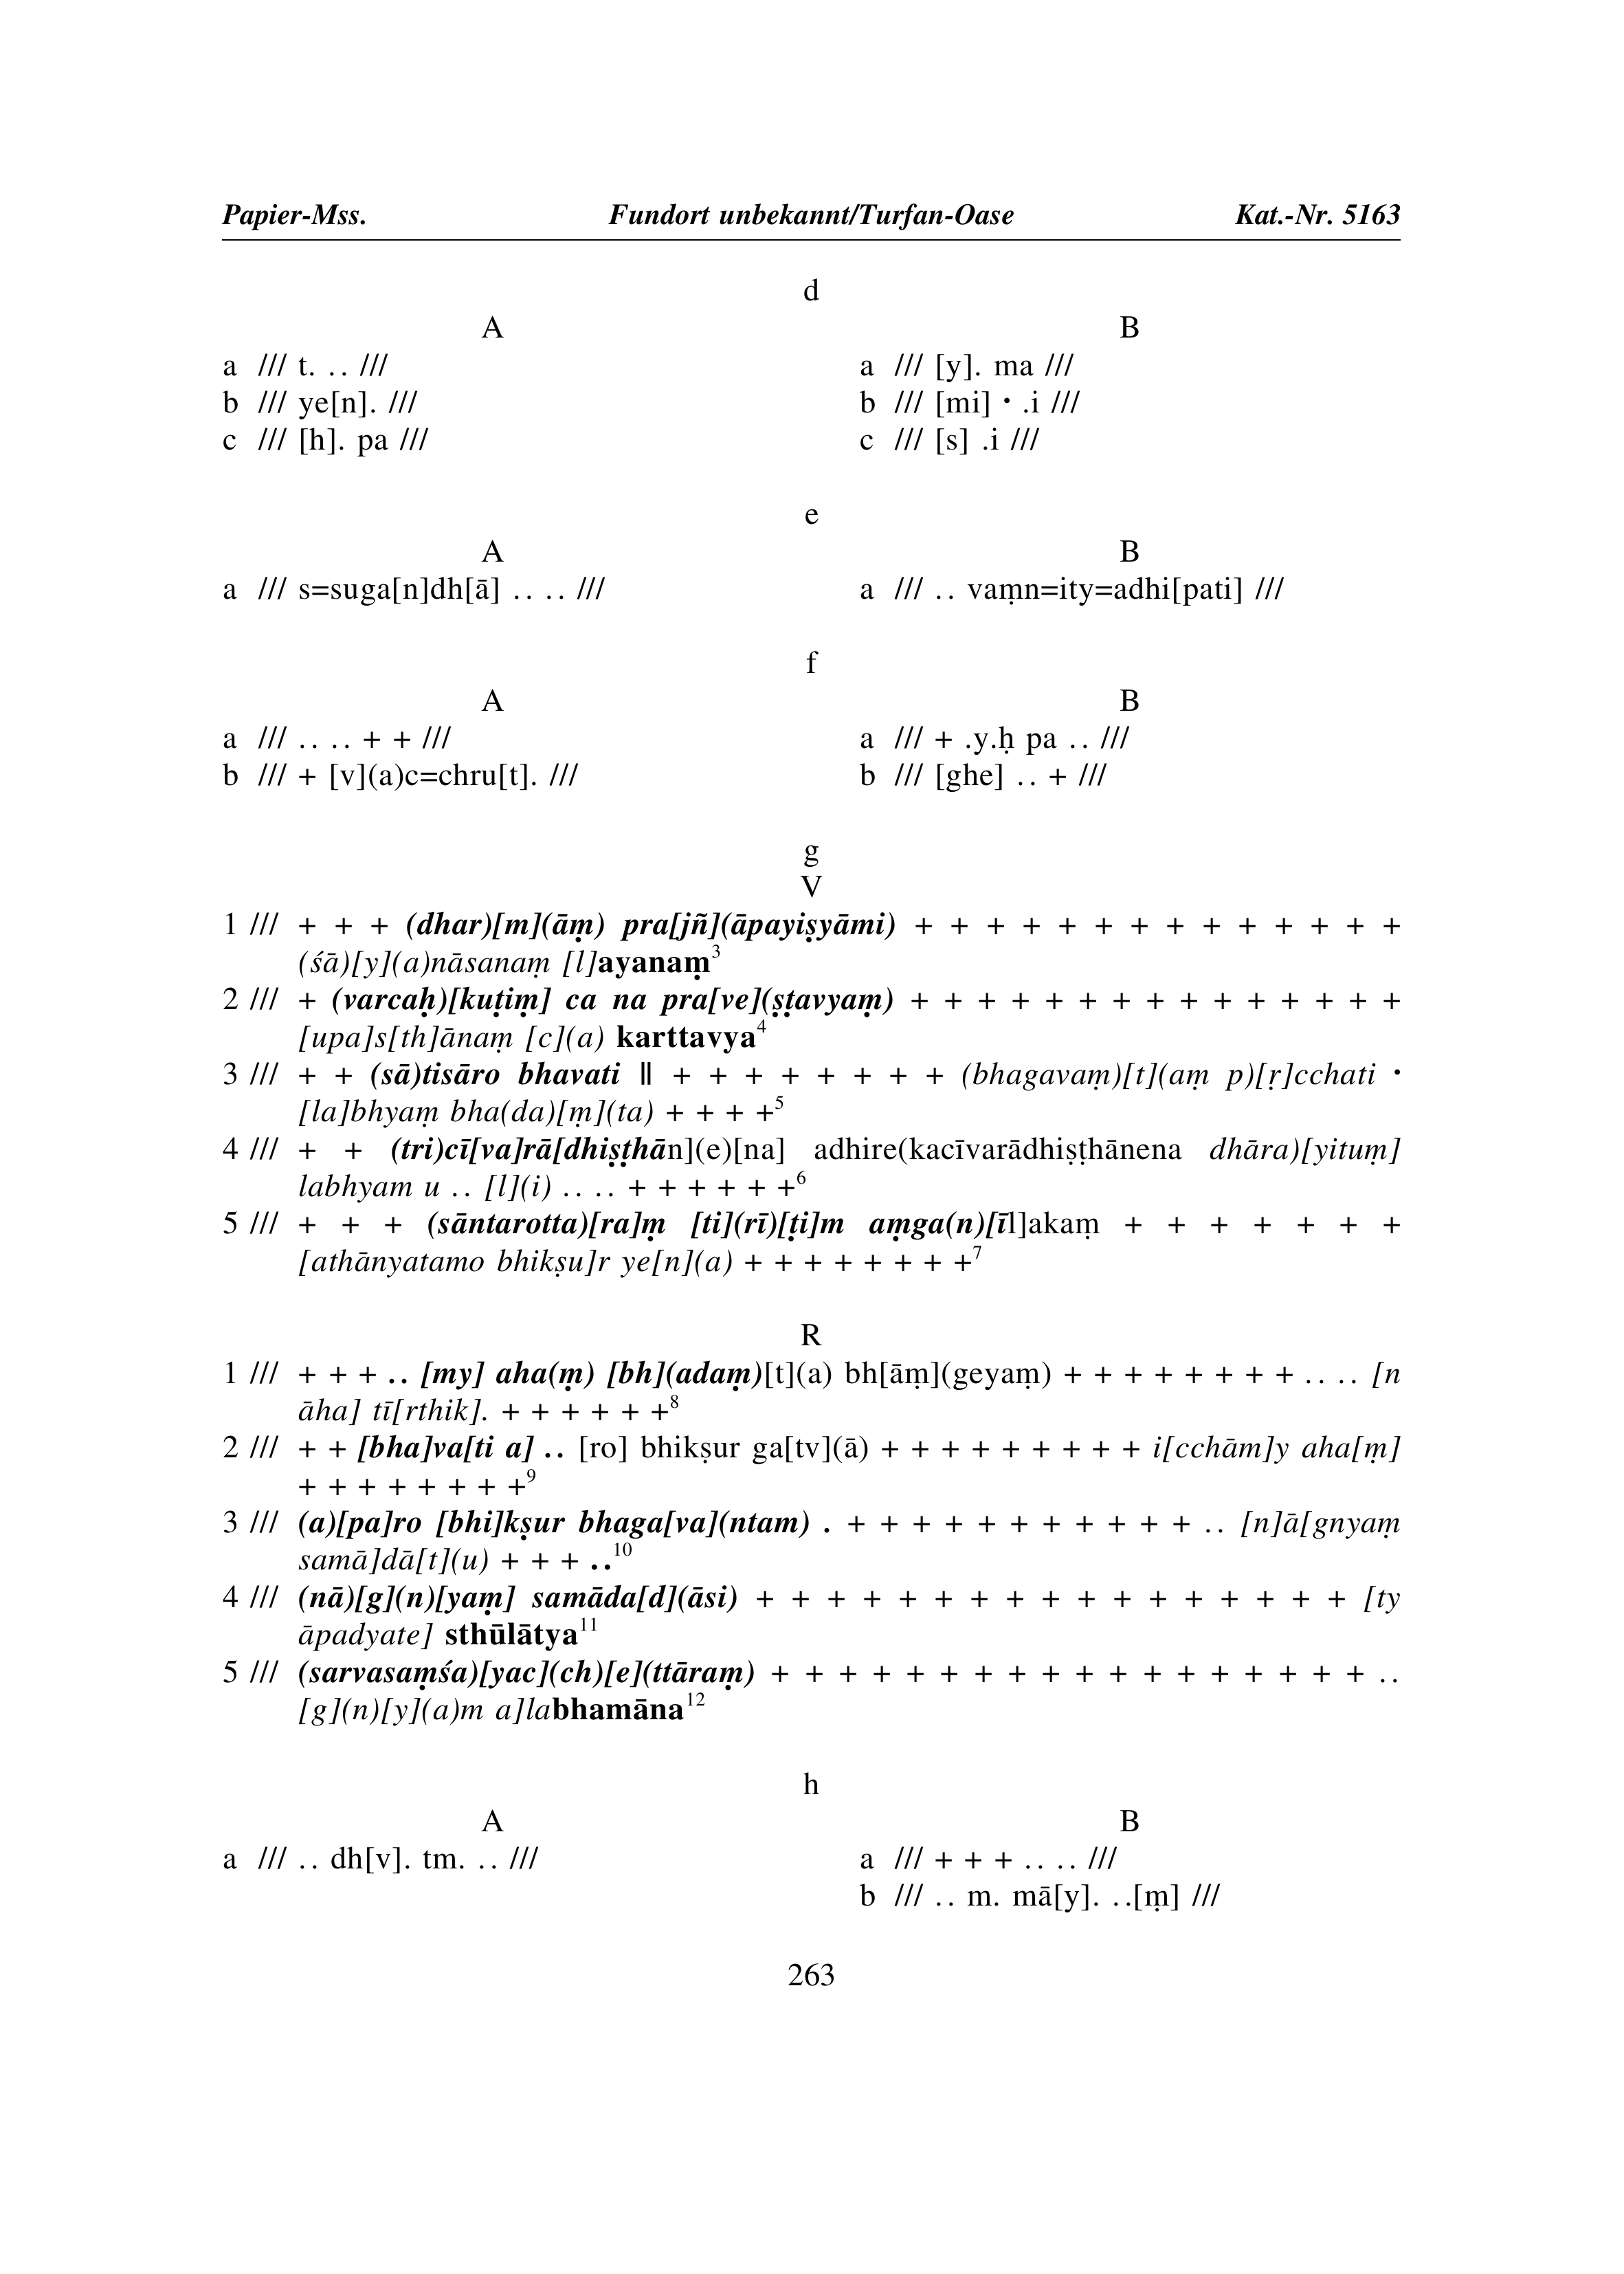 Papier-Mss. Fundort unbekannt/Turfan-Oase Kat.-Nr. 5163
d
A B
a /// t. .. /// a /// [y]. ma ///
b /// ye[n]. /// b /// [mi] • .i ///
c /// [h]. pa /// c /// [s] .i ///
e
A B
a /// s=suga[n]dh[ā] .. .. /// a /// .. vaṃn=ity=adhi[pati] ///
f
A B
a /// .. .. + + /// a /// + .y.ḥ pa .. ///
b /// + [v](a)c=chru[t]. /// b /// [ghe] .. + ///
g
V
1 /// + + + (dhar)[m](āṃ) pra[jñ](āpayiṣyāmi) + + + + + + + + + + + + + +
(śā)[y](a)nāsanaṃ [l]ayanaṃ3
2 /// + (varcaḥ)[kuṭiṃ] ca na pra[ve](ṣṭavyaṃ) + + + + + + + + + + + + + + +
[upa]s[th]ānaṃ [c](a) karttavya4
3 /// + + (sā)tisāro bhavati ǁ + + + + + + + + (bhagavaṃ)[t](aṃ p)[ṛ]cchati •
[la]bhyaṃ bha(da)[ṃ](ta) + + + +5
4 /// + + (tri)cī[va]rā[dhiṣṭhān](e)[na] adhire(kacīvarādhiṣṭhānena dhāra)[yituṃ]
labhyam u .. [l](i) .. .. + + + + + +6
5 /// + + + (sāntarotta)[ra]ṃ [ti](rī)[ṭi]m aṃga(n)[īl]akaṃ + + + + + + +
[athānyatamo bhikṣu]r ye[n](a) + + + + + + + +7
R
1 /// + + + .. [my] aha(ṃ) [bh](adaṃ)[t](a) bh[āṃ](geyaṃ) + + + + + + + + .. .. [n
āha] tī[rthik]. + + + + + +8
2 /// + + [bha]va[ti a] .. [ro] bhikṣur ga[tv](ā) + + + + + + + + + i[cchām]y aha[ṃ]
+ + + + + + + +9
3 /// (a)[pa]ro [bhi]kṣur bhaga[va](ntam) . + + + + + + + + + + + .. [n]ā[gnyaṃ
samā]dā[t](u) + + + ..10
4 /// (nā)[g](n)[yaṃ] samāda[d](āsi) + + + + + + + + + + + + + + + + + [ty
āpadyate] sthūlātya11
5 /// (sarvasaṃśa)[yac](ch)[e](ttāraṃ) + + + + + + + + + + + + + + + + + + ..
[g](n)[y](a)m a]labhamāna12
h
A B
a /// .. dh[v]. tm. .. /// a /// + + + .. .. ///
b /// .. m. mā[y]. ..[ṃ] ///
263